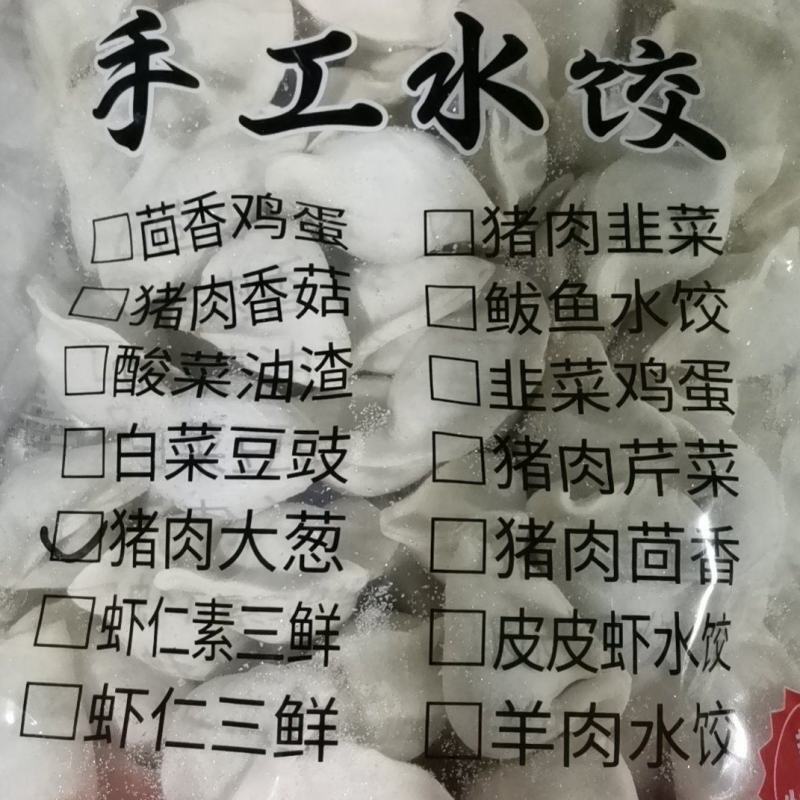 手工水饺
□茴香鸡蛋 □猪肉韭菜
□猪肉香菇 □鲅鱼水饺
□酸菜油渣 □韭菜鸡蛋
□白菜豆豉 □猪肉芹菜
☑猪肉大葱 □猪肉茴香
□虾仁素三鲜 □皮皮虾水饺
□虾仁三鲜 □羊肉水饺